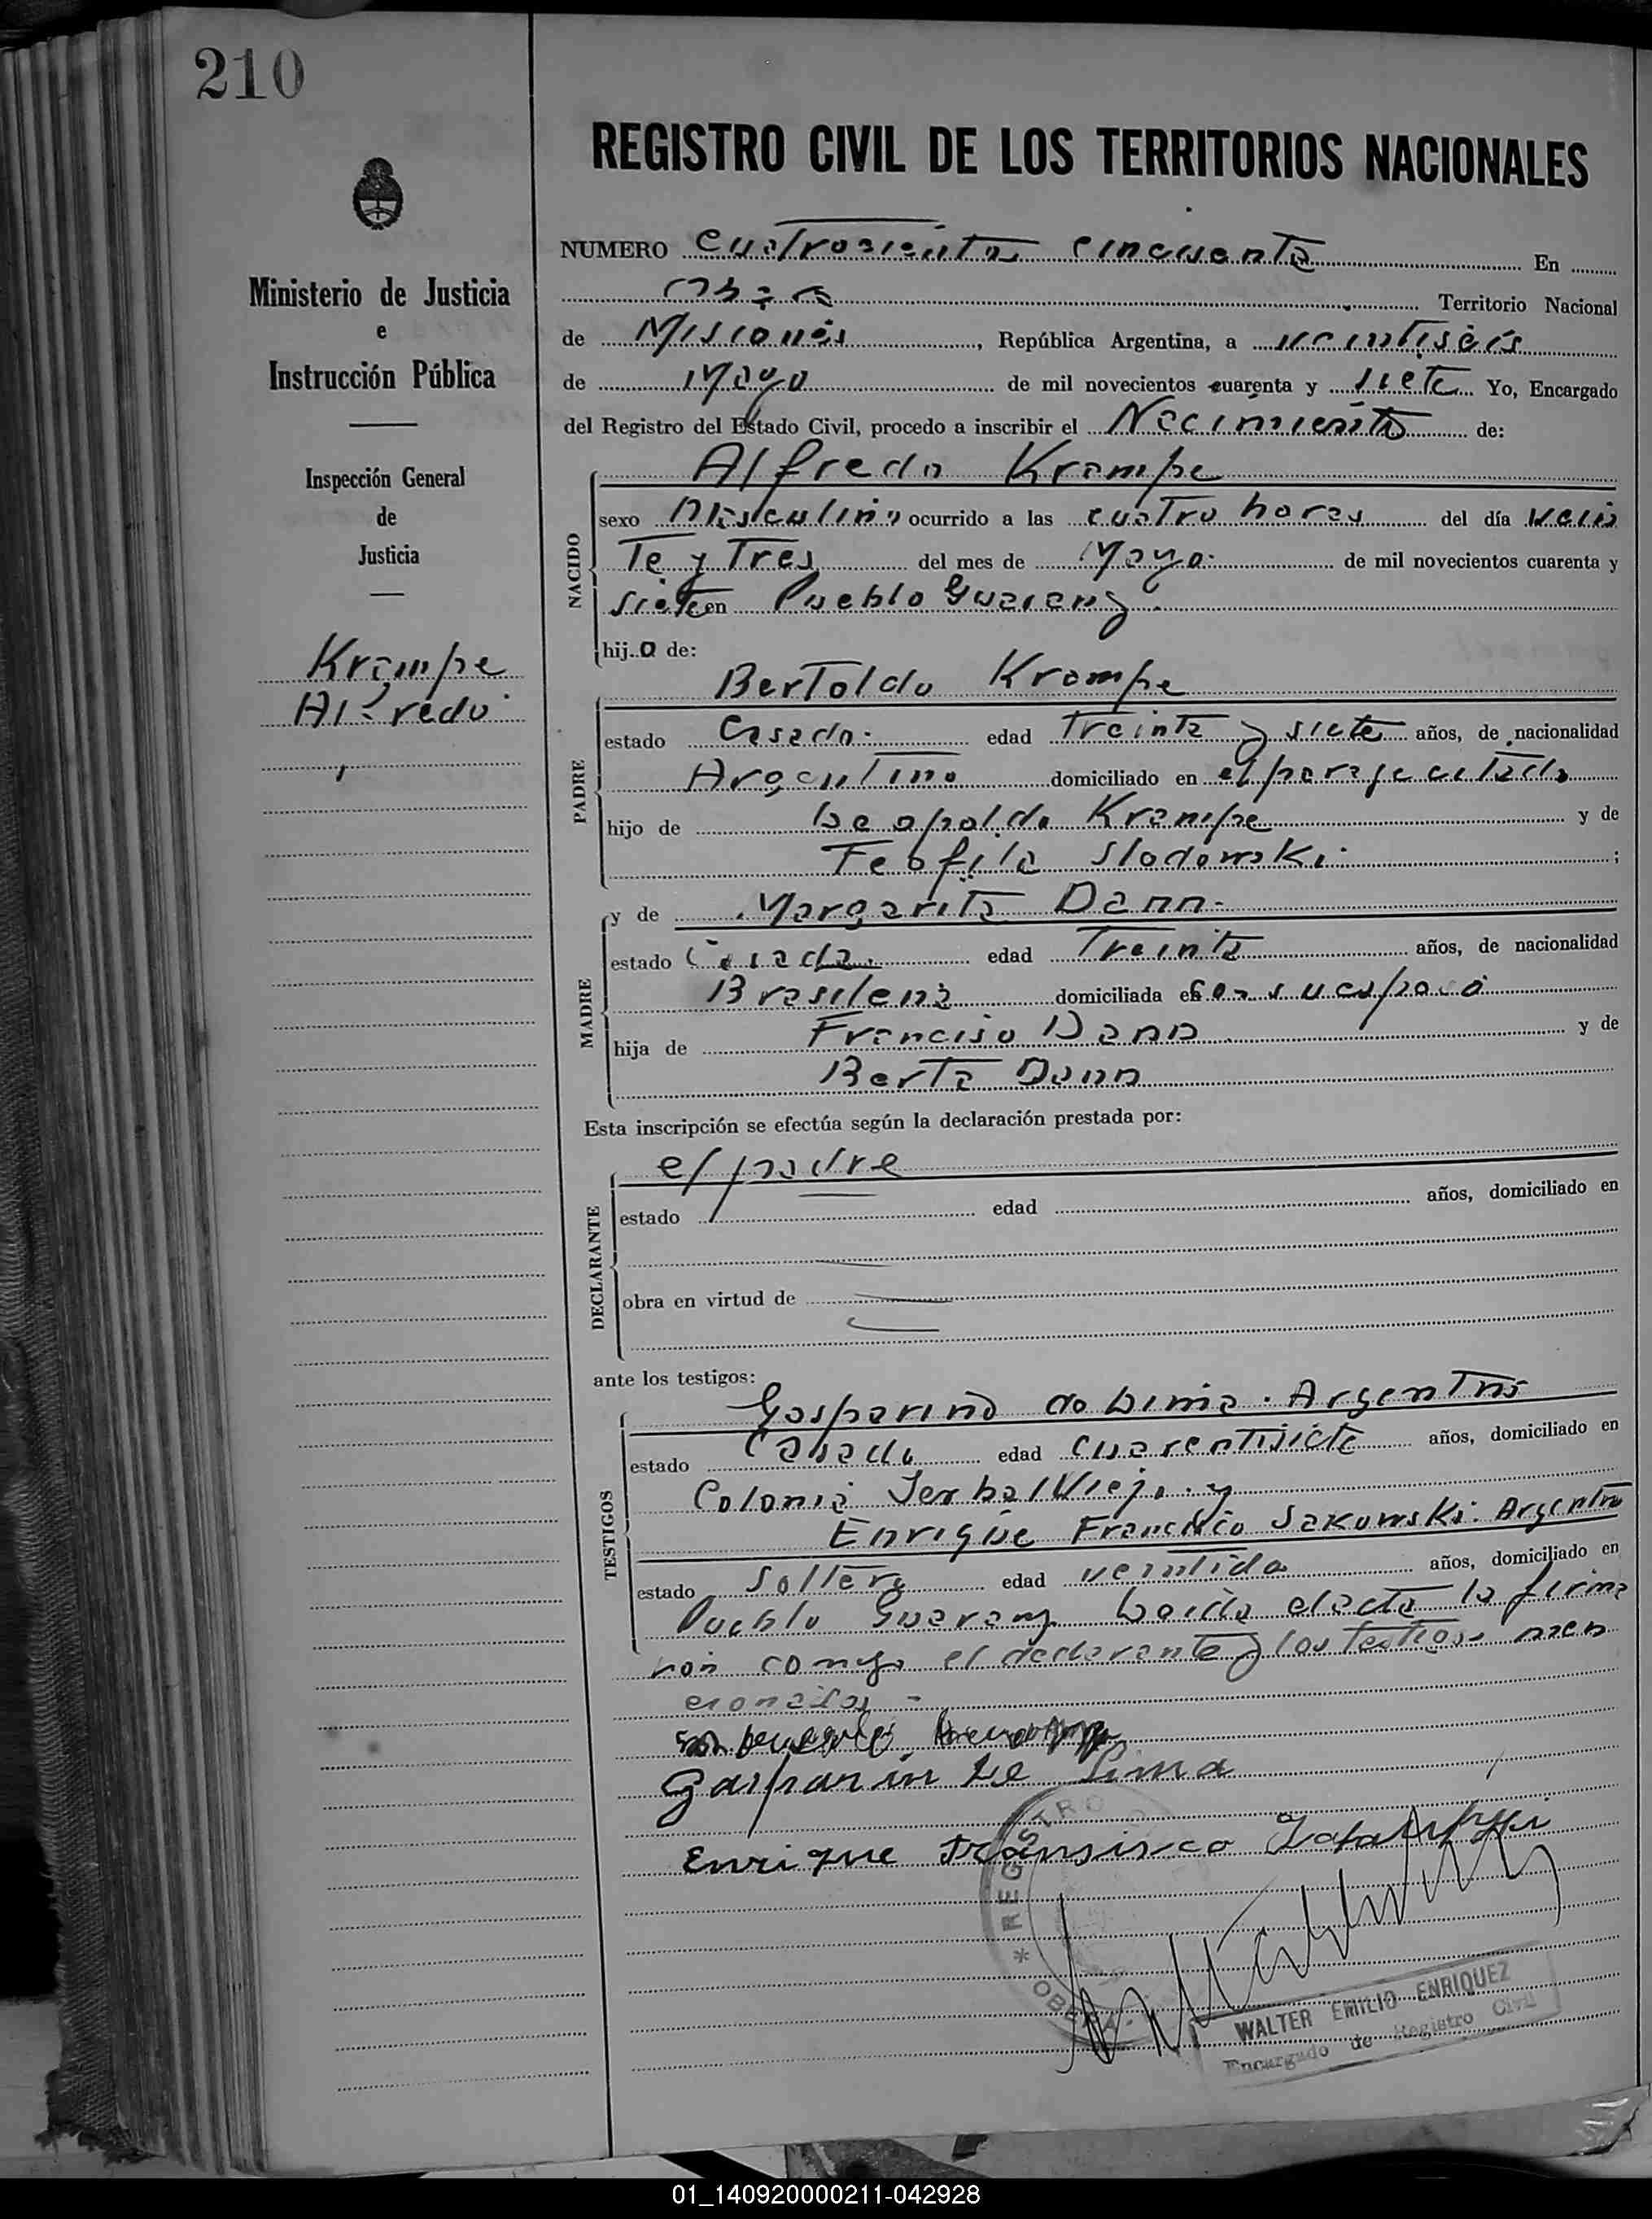 210
REGISTRO CIVIL DE LOS TERRITORIOS NACIONALES
Ministerio de Justicia
e
Instrucción Pública
Inspección General
de
Justicia
Krampe
Alfredo
NUMERO Cuatrosienta cincuenta En
Territorio Nacional
de Misiones, República Argentina, a veintiseis
de Mayo de mil novecientos cuarenta y siete Yo, Encargado
del Registro del Estado Civil, procedo a inscribir el Nacimiento de:
NACIDO
Alfredo Krampe
sexo Masculino ocurrido a las cuatro horas del día vein
te y Tres del mes de Mayo de mil novecientos cuarenta y
siete en Pueblo Guarany
hij.o de:
PADRE
Bertoldo Krampe
estado Casado edad Treinta y siete años, de nacionalidad
Argentino domiciliado en el paraje citado
hijo de Leopoldo Krampe y de
Teofila Slodowski ;
MADRE
y de Margarita Dann
estado Casada edad Treinta años, de nacionalidad
Brasilena domiciliada en con su esposo
hija de Francisco Dann y de
Berta Dann
Esta inscripción se efectúa según la declaración prestada por:
DECLARANTE
el padre
estado edad años, domiciliado en
obra en virtud de
ante los testigos:
TESTIGOS
Gasparino do Lima. Argentino
estado Casado edad cuarentisiete años, domiciliado en
Colonia Yerbal Viejo y
Enrique Francisco Sakowski. Argentino
estado Soltero edad veintido años, domiciliado en
Pueblo Guarany Leida el acta la firma
ron comigo el declarante y los testigos men
cionados
Gasparin De Lima
Enrique Fransisco
REGISTRO
* OBERA
WALTER EMILIO ENRIQUEZ
Encargado de Registro Civil
01_140920000211-042928